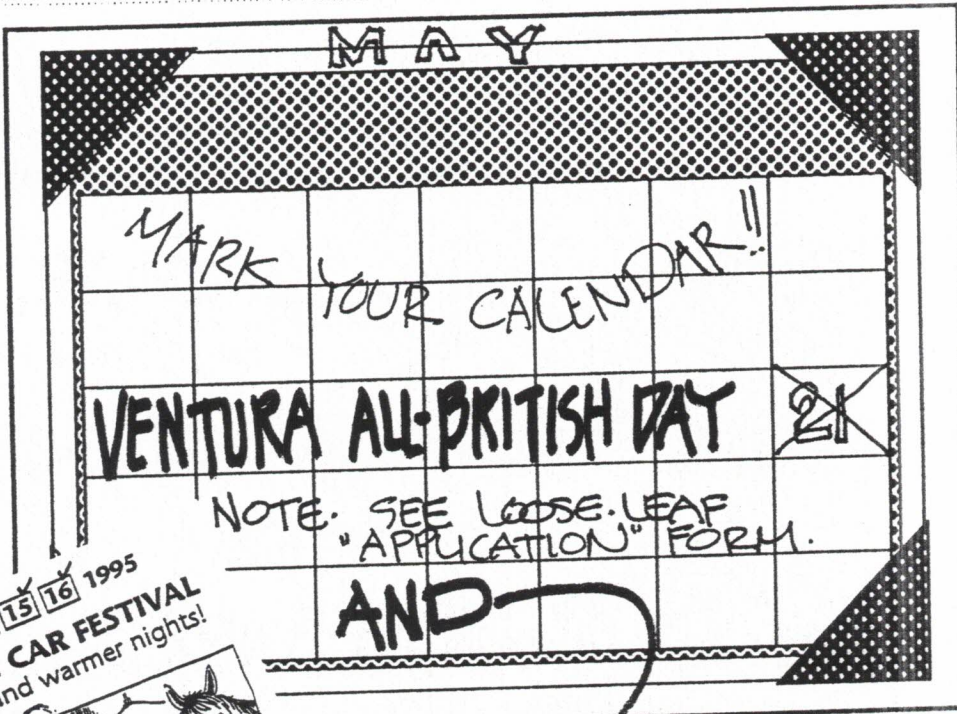 MAY
MARK YOUR CALENDAR!!
VENTURA ALL-BRITISH DAY 21
NOTE. SEE LOOSE-LEAF
"APPLICATION" FORM.
AND
15 16 1995
CAR FESTIVAL
nd warmer nights!